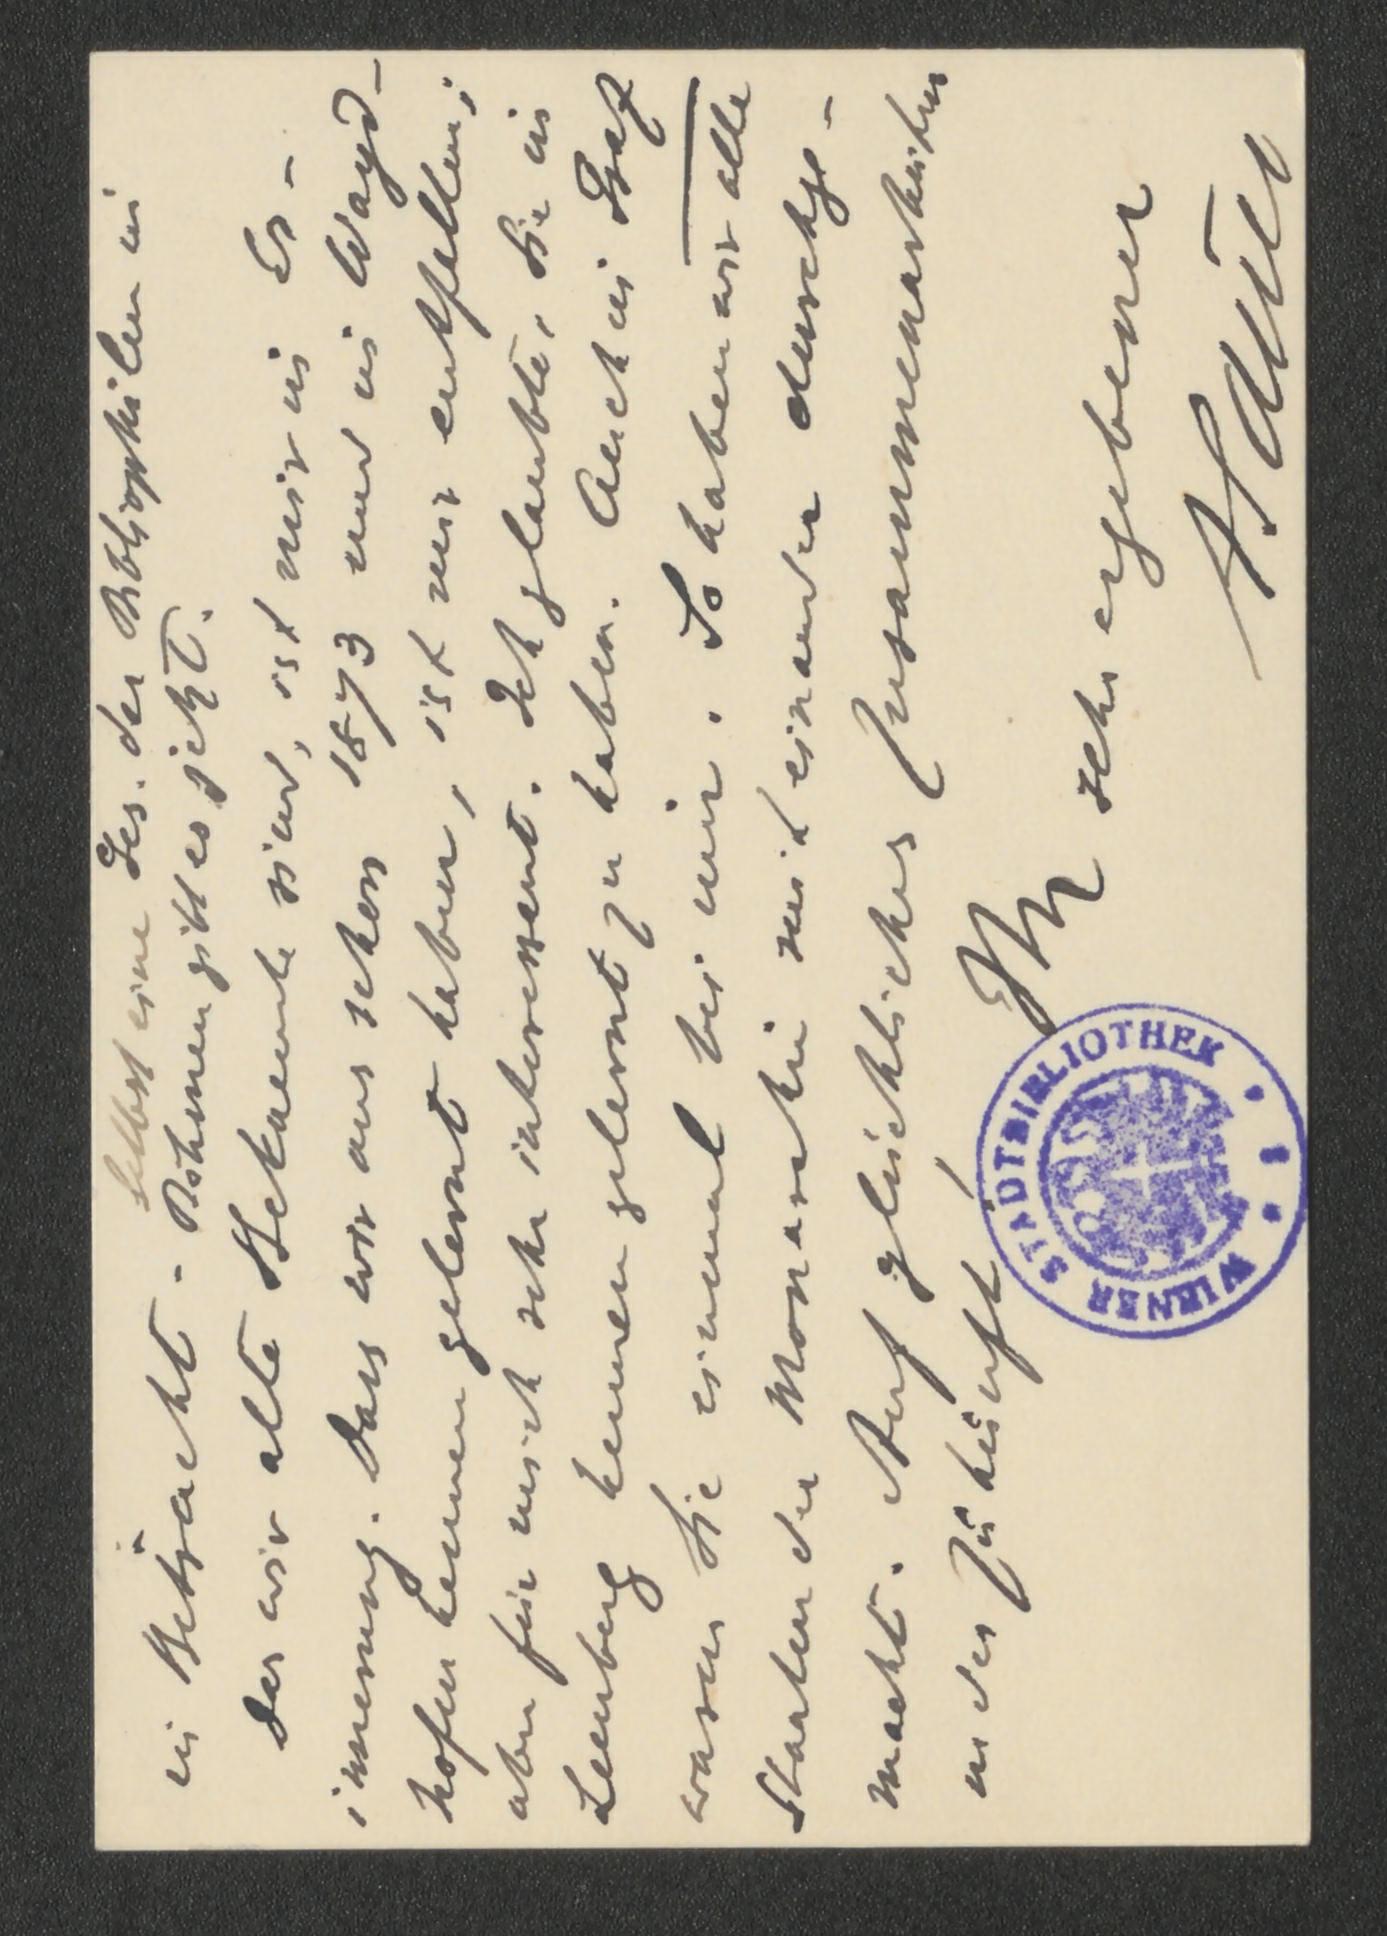 in Betracht. - Selbst eine Ges. der Bibliophilen in
Böhmen gibt es jetzt.
Das wir alte Bekannte sind, ist mir in Er-
innerung. Dass wir uns schon 1873 und in Wayd-
hofen kennen gelernt haben, ist mir entfallen;
aber für mich sehr interessant. Ich glaubte, Sie in
Lemberg kennen gelernt zu haben. Auch in Graz
waren Sie einmal bei mir. So haben wir alle
Staaten der Monarchie mit einander durchge-
macht. Auf glückliches Zusammenarbeiten
in der Zukunft,
Ihr sehr ergebener
A Sauer
WIENER STADTBIBLIOTHEK